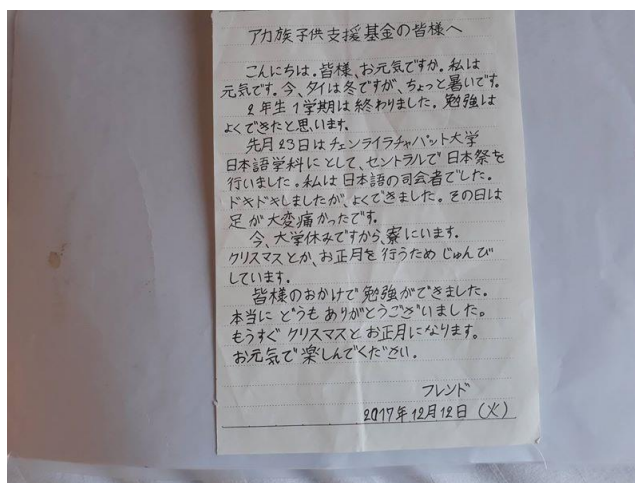 アカ族子供支援基金の皆様へ
こんにちは。皆様、お元気ですか。私は
元気です。今、タイは冬ですが、ちょっと暑いです。
2年生1学期は終わりました。勉強は
よくできたと思います。
先月23日はチェンライラチャパット大学
日本語学科にとして、セントラルで日本祭を
行いました。私は日本語の司会者でした。
ドキドキしましたが、よくできました。その日は
足が大変痛かったです。
今、大学休みですから、寮にいます。
クリスマスとか、お正月を行うためじゅんび
しています。
皆様のおかげで勉強ができました。
本当にどうもありがとうございました。
もうすぐクリスマスとお正月になります。
お元気で楽しんでください。
フレンド
2017年12月12日(火)